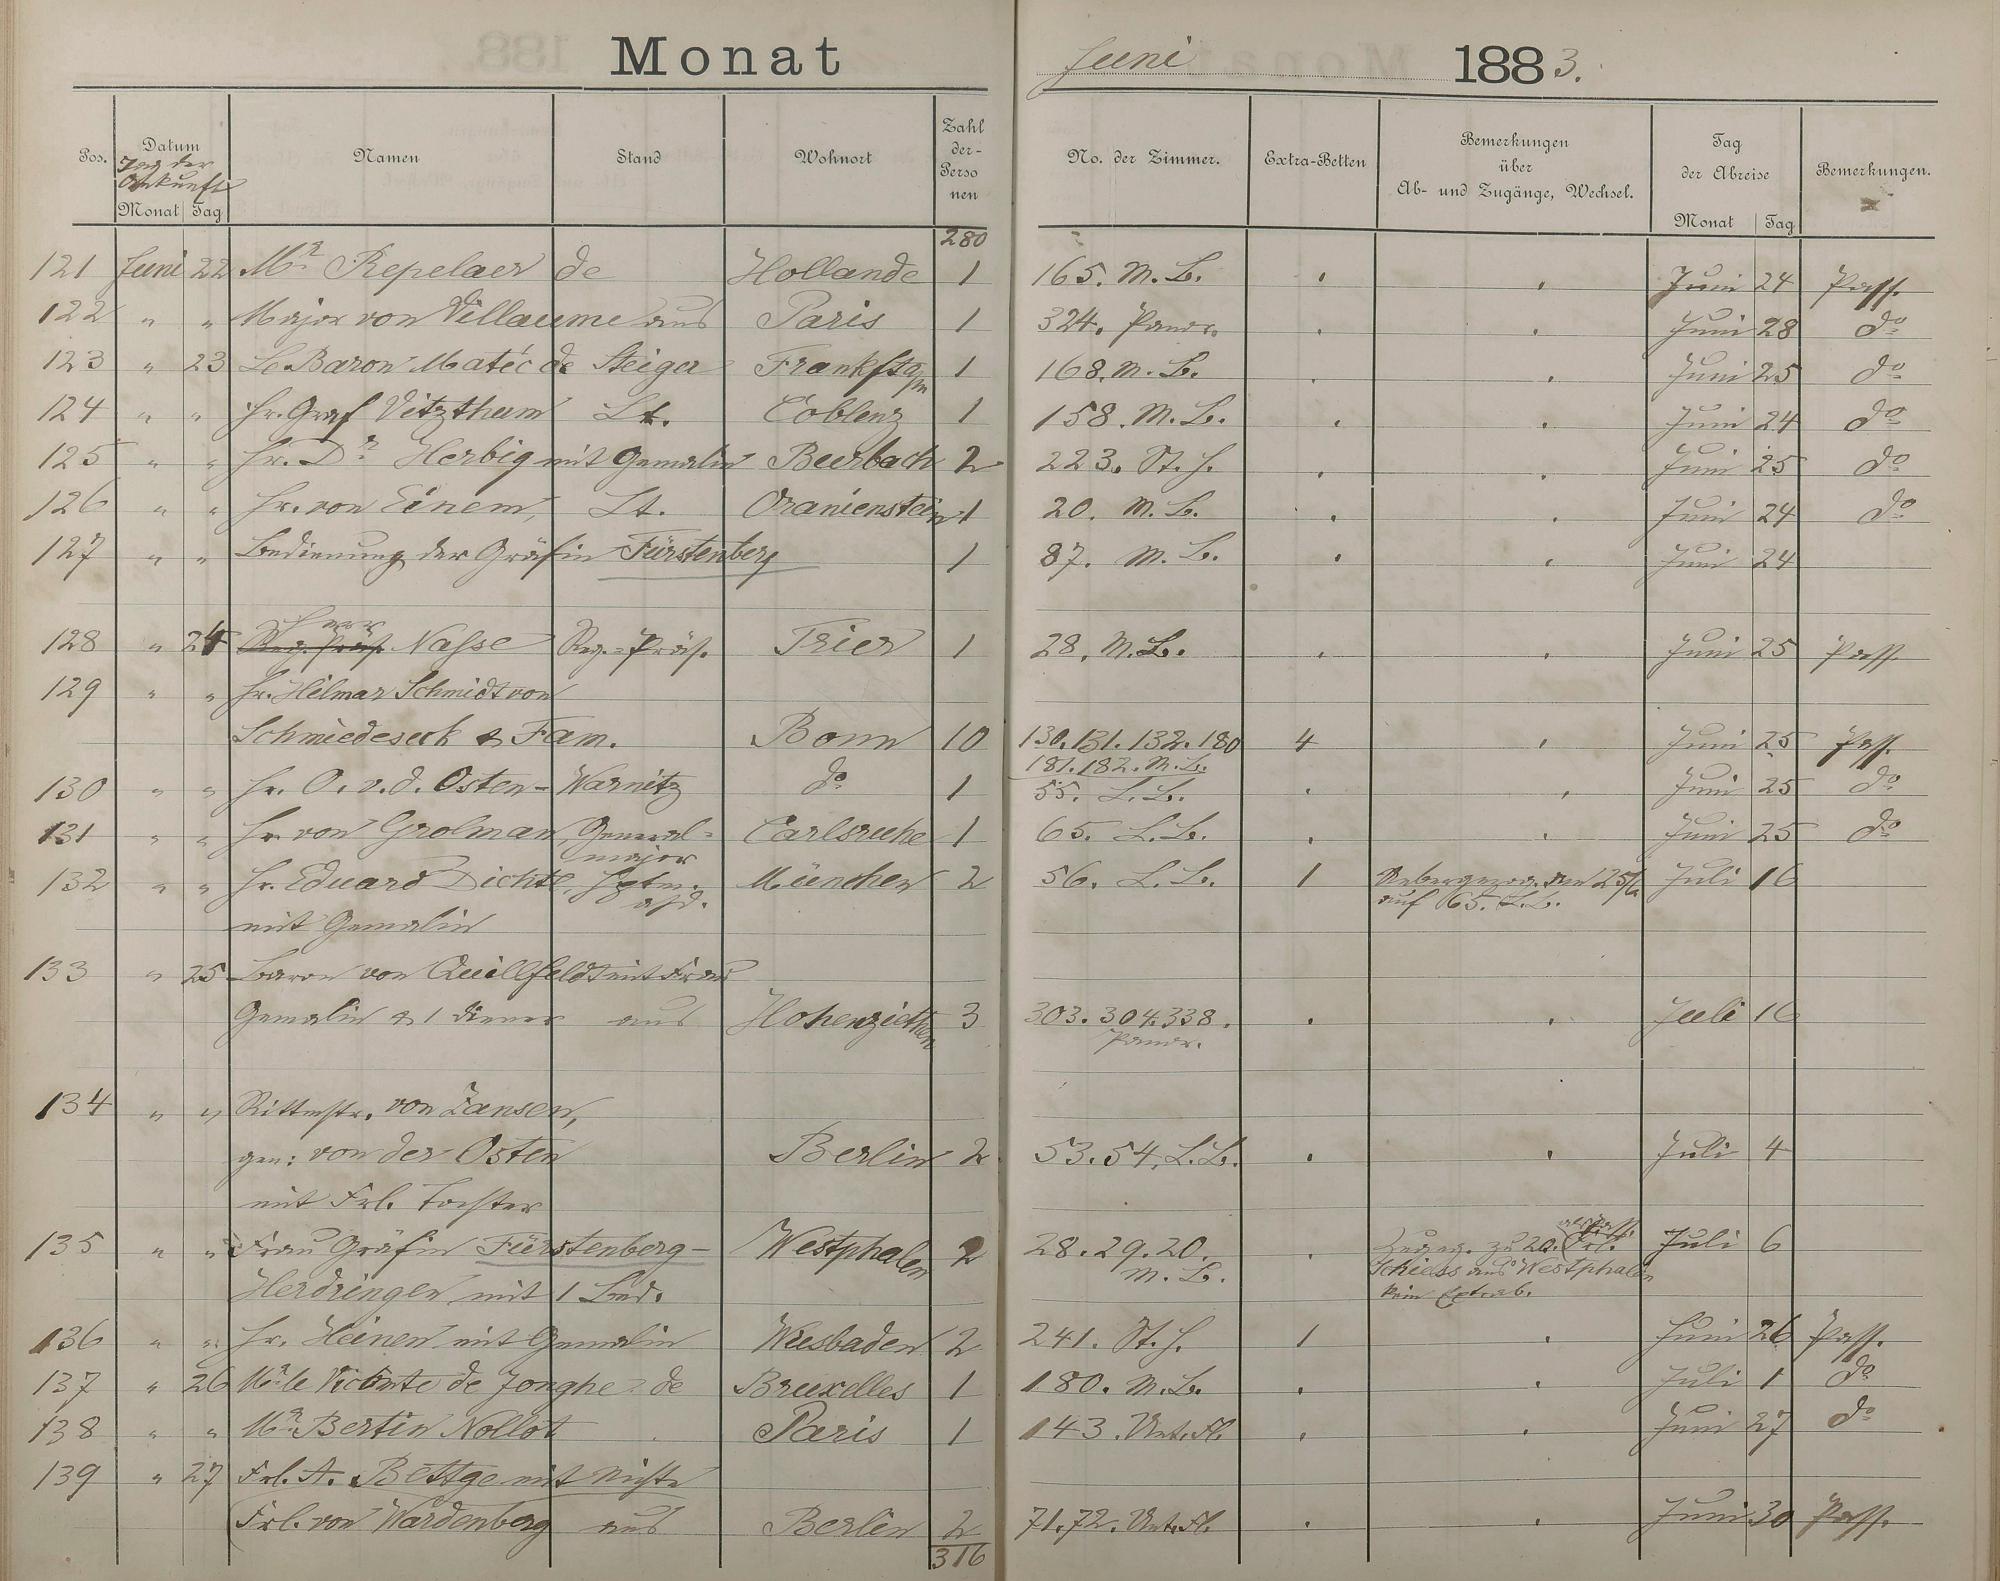 Monat Juni 1883.
Pos. Datum Namen Stand Wohnort Zahl der Personen No. der Zimmer. Extra-Betten Bemerkungen über Ab- und Zugänge, Wechsel. Tag der Abreise Bemerkungen.
Tag der Ankunft
Monat Tag Monat Tag
280
121 Juni 22 Mr. Repelaer de Hollande 1 165. M. B. " " Juni 24 Pass.
122 " " Major von Villaume aus Paris 1 324. Panor. " " Juni 28 do
123 " 23 Le Baron Matéc de Steiger Frankft a/m 1 168. M. B. " " Juni 25 do
124 " " Hr. Graf Vitzthum Lt. Coblenz 1 158. M. B. " " Juni 24 do
125 " " Hr. Dr. Herbig mit Gemalin Beerbach 2 223. St. H. " " Juni 25 do
126 " " Hr. von Einem, Lt. Oranienstein 1 20. M. B. " " Juni 24 do
127 " " Bedienung der Gräfin Fürstenberg 1 87. M. B. " " Juni 24
Herr
128 " 24 Reg. Präs. Nasse Reg.-Präs. Trier 1 28. M. B. " " Juni 25 Pass.
129 " " Hr. Hilmar Schmidt von
Schmiedeseck & Fam. Bonn 10 130. 131. 132. 180 4 " Juni 25 Pass.
181. 182. M. B.
130 " " Hr. O. v. d. Osten-Warnitz do 1 55. L. B. " " Juni 25 do
131 " " Hr. von Grolman General- Carlsruhe 1 65. L. B. " " Juni 25 do
major
132 " " Hr. Eduard Dichtl, Hptm. München 2 56. L. B. 1 Uebergezog. den 25/6 Juli 16
a/D. auf 65. L. B.
mit Gemalin
133 " 25 Baron von Quillfeldt mit Frau
Gemalin & 1 Diener aus Hohenziethen 3 303. 304. 338. " " Juli 16
Panor.
134 " " Rittmstr. von Zansen,
gen: von der Osten Berlin 2 53. 54. L. B. " " Juli 4
mit Frl. Tochter
135 " " Frau Gräfin Fürstenberg- Westphalen 2 28. 29. 20. " Zugeg. zu 20. Frl. Juli 6
M. B. Schiess aus Westphalen
Herdringen mit 1 Bed. kein Extrab.
136 " " Hr. Heinen mit Gemalin Wiesbaden 2 241. St. H. 1 " Juni 26 Pass.
137 " 26 Mr. le Vicomte de Jonghe de Bruxelles 1 180. M. B. " " Juli 1 do
138 " " Mr. Bertin Nollot Paris 1 143. Unt. Fl. " " Juni 27 do
139 " 27 Frl. A. Bettge mit Nichte
Frl. von Wardenberg aus Berlin 2 71. 72. Unt. Fl. " " Juni 30 Pass.
316